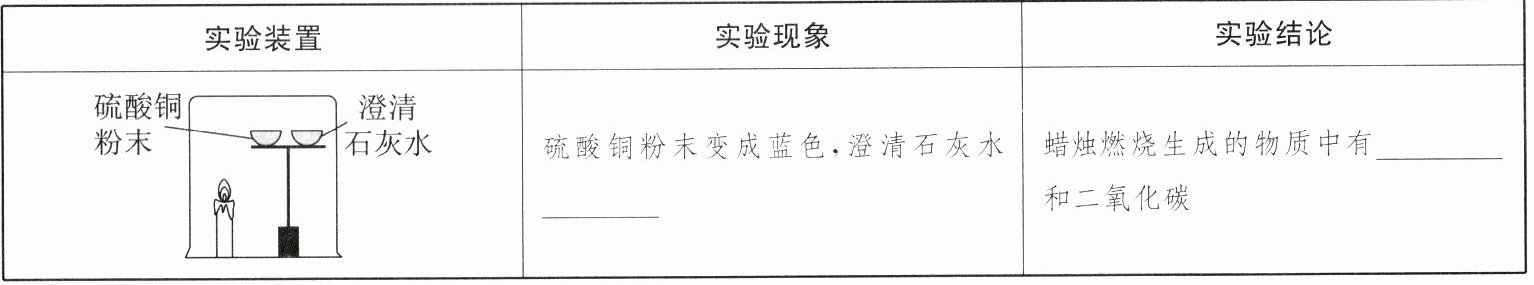 实验装置
实验现象
实验结论
硫酸铜
粉末
澄清
石灰水
硫酸铜粉末变成蓝色,澄清石灰水
________
蜡烛燃烧生成的物质中有________
和二氧化碳